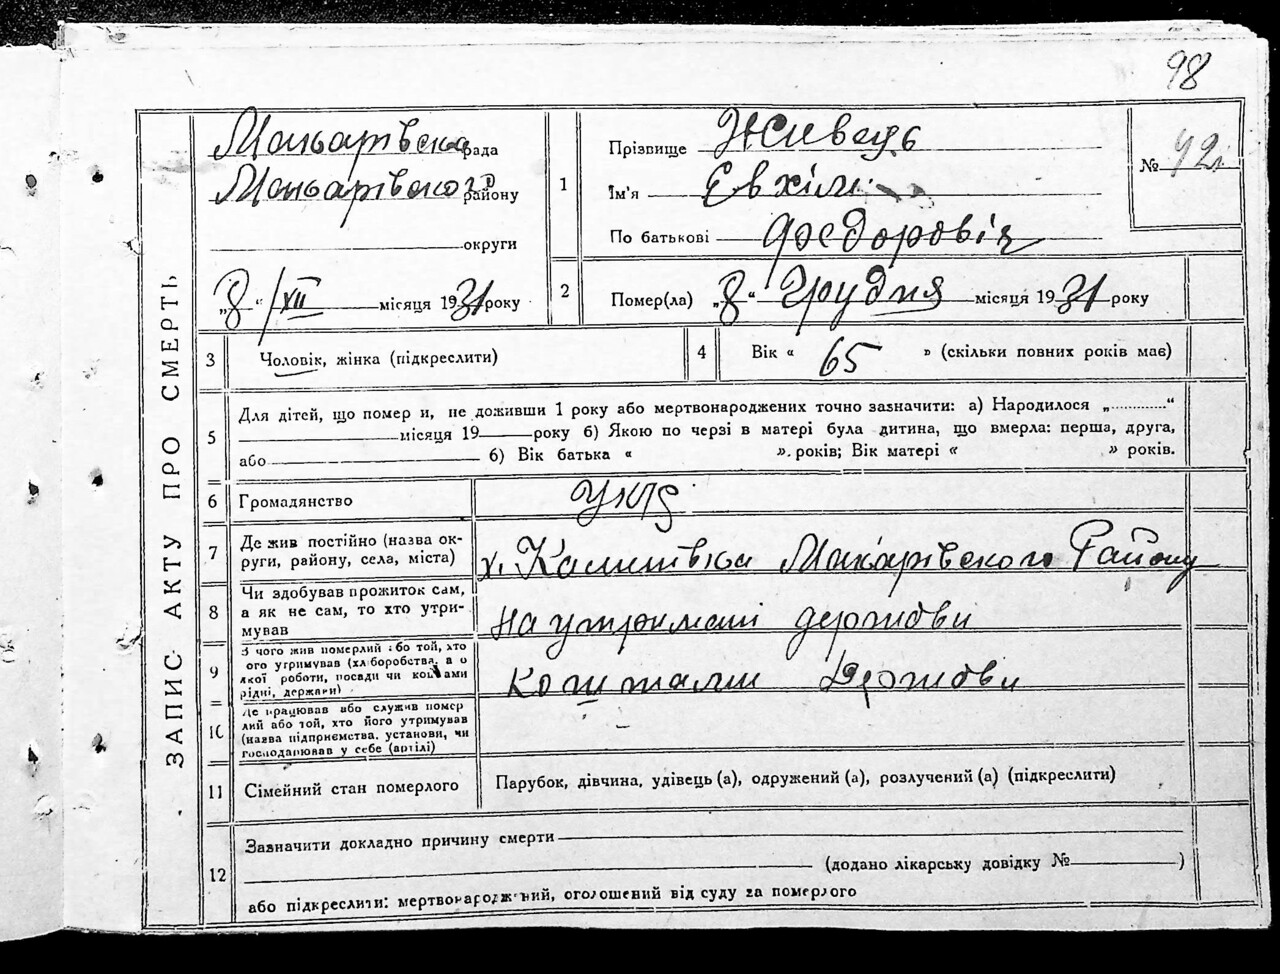 98
ЗАПИС АКТУ ПРО СМЕРТЬ
Макарівська рада
Макарівского району
округи
„8“/XII місяця 1931 року
1
Прізвище Живець
Ім'я Євхім
По батькові Федоровіч
№ 42
2
Помер(ла) „8“ Грудня місяця 1931 року
3 Чоловік, жінка (підкреслити)
4 Вік « 65 » (скільки повних років має)
5
Для дітей, що помер и, не доживши 1 року або мертвонароджених точно зазначити: а) Народилося „..............“
місяця 19 року б) Якою по черзі в матері була дитина, що вмерла: перша, друга,
або б) Вік батька « ». років; Вік матері « » років.
6 Громадянство Укр
7
Де жив постійно (назва ок-
руги, району, села, міста)
х. Калитівка Макарівского Району
8
Чи здобував прожиток сам,
а як не сам, то хто утри-
мував
на утримані держави
9
З чого жив померлий або той, хто
ого утримував (хліборобства, а о
якої роботи, посади чи коштами
рідні, держави)
коштами Держави
10
Де працював або служив помер
лий або той, хто його утримував
(назва підприємства. установи, чи
господарював у себе (артілі)
11 Сімейний стан померлого
Парубок, дівчина, удівець (а), одружений (а), розлучений (а) (підкреслити)
12
Зазначити докладно причину смерти
(додано лікарську довідку № )
або підкреслити: мертвонароджений, оголошений від суду за померлого